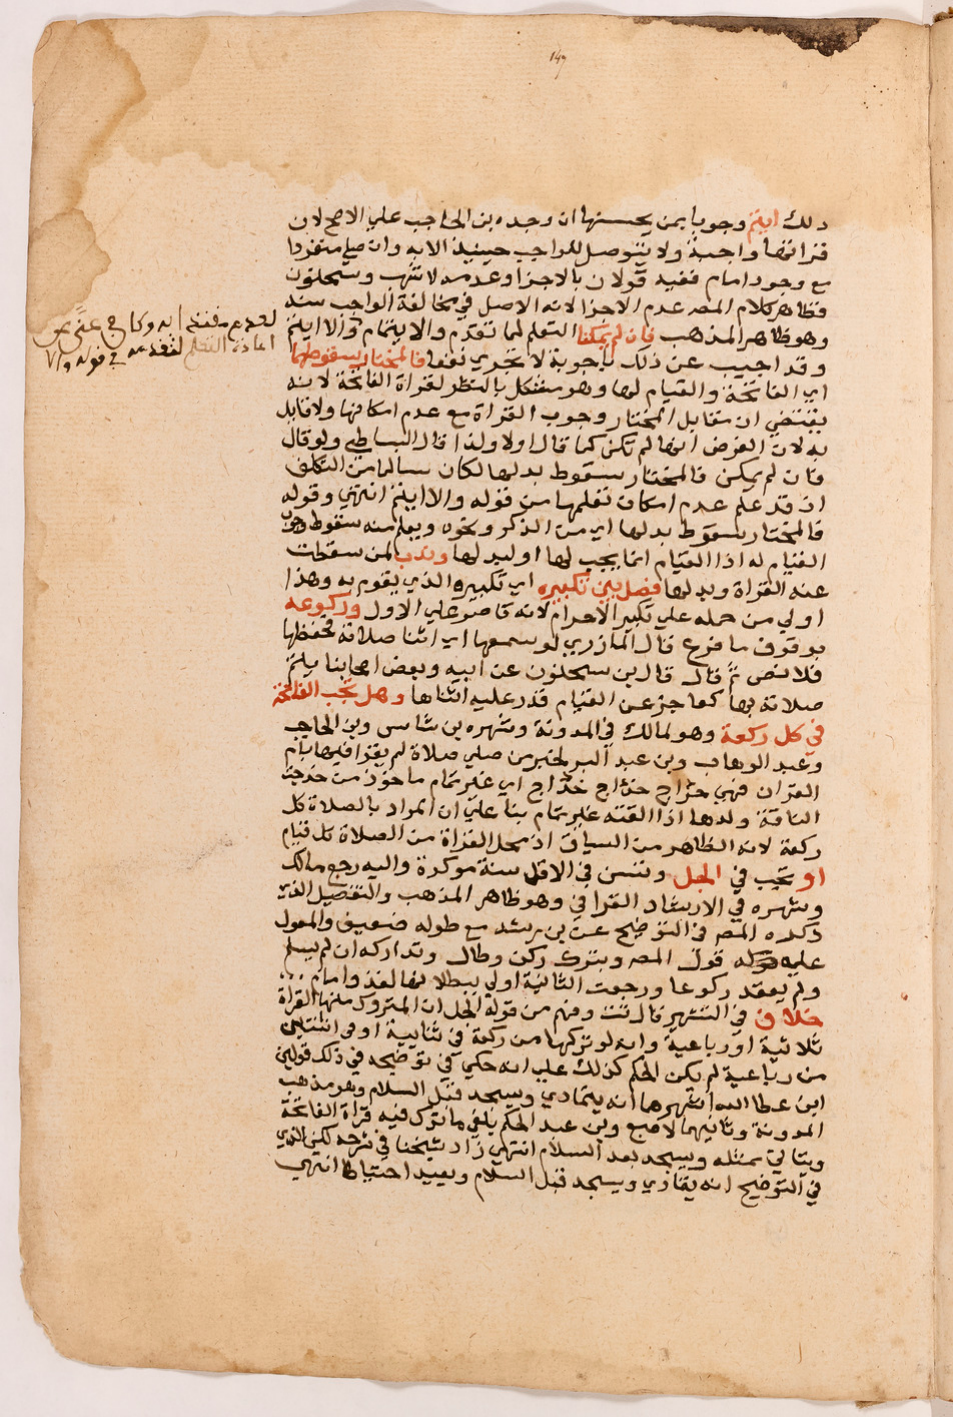 ١٤٧
ذلك ايتم وجوبا بمن يحسنها ان وجده بن الحاجب علي الاصح لان
قراتها واجبة ولا يتوصل للواجب حينيذ الا به وان صلي منفردا
مع وجود امام ففيه قولان بالاجزا وعدمه لاشهب وسحنون
فظاهر كلام المصـ عدم الاجزا لانه الاصل في مخالفة الواجب سند
وهو ظاهر المذهب فان لم يمكنا التعلم لما تقدم والايتمام
وقد اجيب عن ذلك باجوبة لا تجري نفعا فالمختار سقوطهما
اي الفاتحة والقيام لها وهو مشكل بالنظر لقراة الفاتحة لانه
يقتضي ان مقابل المختار وجوب القراة مع عدم امكانها ولا قايل
به لان الفرض انها لم تكن كما قال اولا ولذا قال البساطي ولو قال
فان لم يمكن فالمختار سقوط بدلها لكان سالما من التكلف
اذ قد علم عدم امكان تعلمها من قوله والا ايتم انتهي وقوله
فالمختار سقوط بدلها اي من الذكر ونحوه ويعلم منه سقوط وجوب
القيام له اذ القيام انما يجب لها او لبدلها وندب لمن سقطت
عنه القراة وبدلها فصل بين تكبيره اي تكبيره الذي يقوم به وهذا
اولي من حمله علي تكبير الاحرام لانه قاصر علي الاول وركوعه
بوقوف ما فرع قال المازري لو سمعها اي اثنا صلاته فحفظها
فلا نص ثم قال قال بن سحنون عن ابيه وبعض اصحابنا يتم
صلاته بها كعاجز عن القيام قدر عليه اثناها وهل تجب الفاتحة
في كل ركعة وهو لمالك في المدونة وشهره بن شاس وبن الحاجب
وعبد الوهاب وبن عبد البر لخبر من صلي صلاة لم يقرا فيها بام
القران فهي خداج خداج خداج اي غير تمام ماخوذ من خدجت
الناقة ولدها اذا القته غير تمام بنا علي ان المراد بالصلاة كل
ركعة لانه الظاهر من السياق اذ محل القراة من الصلاة كل قيام
او تجب في الجل وتسن في الاقل سنة موكدة واليه رجع مالك
وشهره في الارشاد القرافي وهو ظاهر المذهب والتفصيل الذي
ذكره المصـ في التوضيح عن بن رشد مع طوله ضعيف والمعول
عليه قول المصـ وبترك ركن وطال وتداركه ان لم يسلم
ولم يعقد ركوعا ورجعت الثانية اولي ببطلانها لفذ وامام
خلاف في التشهير قال تت وفهم من قوله الجل ان المتروك منها القراة
ثلاثية او رباعية وانه لو تركها من ركعة في ثنايية او في اثنتين
من رباعية لم يكن الحكم كذلك علي انه حكي في توضيحه في ذلك قولين
ابن عطا الله اشهرها انه يتمادي ويسجد قبل السلام وهو مذهب
المدونة وثانيهما لاصبغ وبن عبد الحكم يلغي ما ترك فيه قراة الفاتحة
وياتي بمثله ويسجد بعد السلام انتهي زاد شيخنا في شرحه لكن الذي
في التوضيح انه يتمادي ويسجد قبل السلام ويعيد احتياطا انتهي